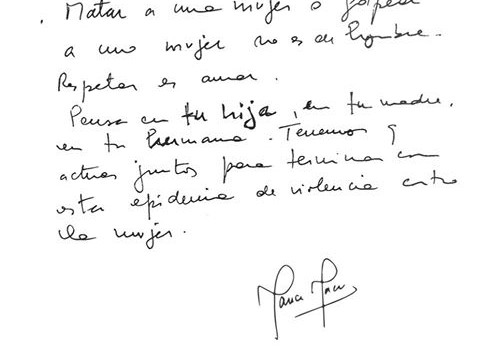 . Matar a una mujer o golpear
a una mujer no es de hombre.
Respetar es amar.
Pensa en tu hija, en tu madre,
en tu hermana. Tenemos q
actuar juntos para terminar con
esta epidemia de violencia entre
la mujer.